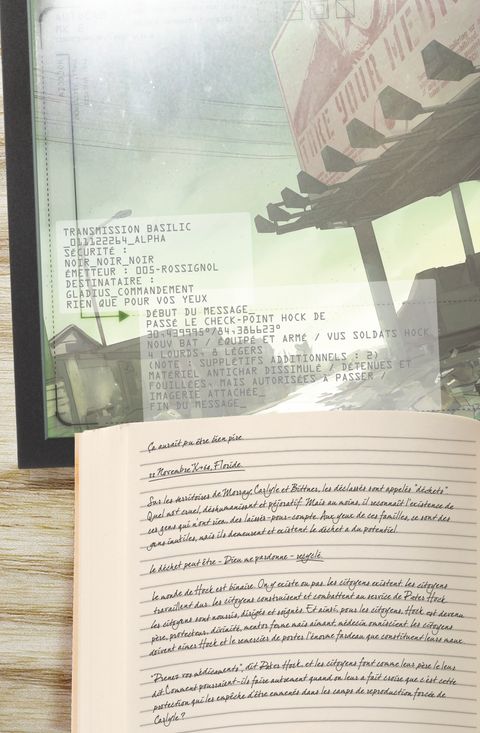 TAKE YOUR MEDI
TRANSMISSION BASILIC
_011122264_ALPHA
SÉCURITÉ :
NOIR_NOIR_NOIR
ÉMETTEUR : 005-ROSSIGNOL
DESTINATAIRE :
GLADIUS_COMMANDEMENT
RIEN QUE POUR VOS YEUX
DÉBUT DU MESSAGE_
PASSÉ LE CHECK-POINT HOCK DE
30,439995º/84,386623º
NOUV BAT / ÉQUIPÉ ET ARMÉ / VUS SOLDATS HOCK
4 LOURDS, 8 LÉGERS
(NOTE : SUPPLÉTIFS ADDITIONNELS : 2)
MATÉRIEL ANTICHAR DISSIMULÉ / DÉTENUES ET
FOUILLÉES, MAIS AUTORISÉES À PASSER /
IMAGERIE ATTACHÉE_
FIN DU MESSAGE_
Ça aurait pu être bien pire
Novembre, Floride
Sur les territoires de Morray, Carlyle et Büttner, les déclassés sont appelés "déchets".
Quel mot cruel, déshumanisant et péjoratif. Mais au moins, il reconnaît l'existence de
ces gens qui n'ont rien, des laissés-pour-compte. Aux yeux de ces familles, ce sont des
gens inutiles, mais ils demeurent et existent, le déchet a du potentiel.
le déchet peut être - Dieu me pardonne - recyclé.
le monde de Hock est binaire. On y existe ou pas. les citoyens existent. les citoyens
travaillent dur. les citoyens construisent et combattent au service de Peter Hock.
les citoyens sont nourris, dirigés et soignés. Et ainsi, pour les citoyens, Hock est devenu
père, protecteur, divinité, mentor, ferme mais aimant, médecin omniscient. les citoyens
doivent aimer Hock et le remercier de porter l'énorme fardeau que constituent leurs maux.
"Prenez vos médicaments", dit Peter Hock, et les citoyens font comme leur père le leur
dit. Comment pourraient-ils faire autrement quand on leur a fait croire que c'est cette
protection qui les empêche d'être emmenés dans les camps de reproduction forcée de
Carlyle ?